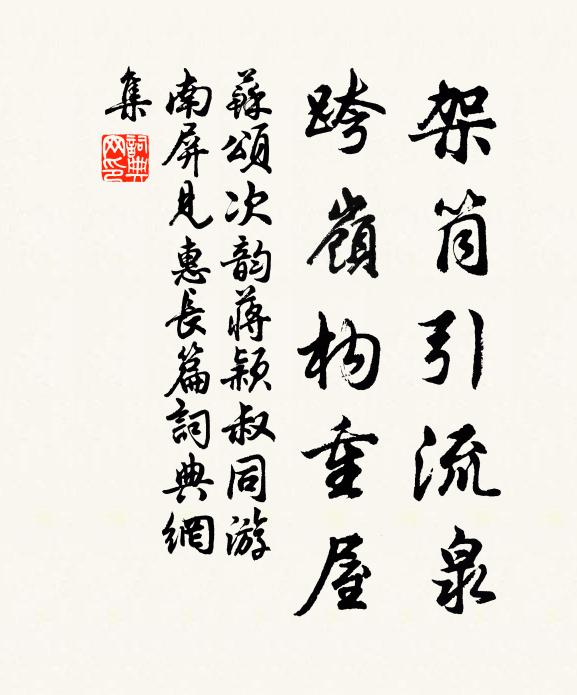 架筒引流泉
跨嶺构重屋
蘇頌次韵蔣颖叔同游
南屏見惠長篇詞典網
集
詞典
网印